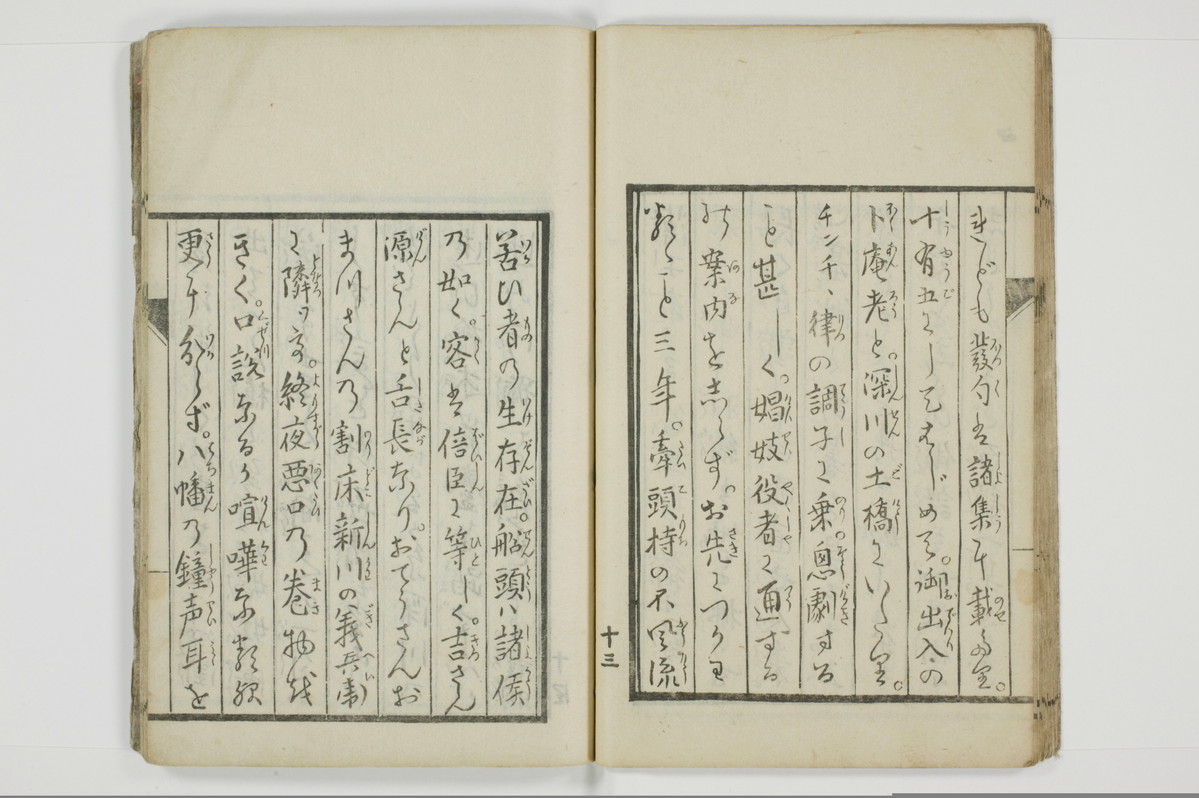 れども發句は諸集に載たり。
十有五にしてはじめて。御出入の
卜庵老と。深川の土橋にいたり。
チンチヽ律の調子に乗。恩劇する
こと甚しく。娼妓役者に通ずる
の案内をしらず。お先につかわ
るゝこと三年。牽頭持の不風流
十三
若ひ者の生存在。船頭ハ諸侯
の如く。客は倍臣に等しく。吉さん
源さんと舌長なり。おてうさんお
まつさんの割床新川の義兵衛
に隣ッて。終夜悪口の巻物を
きく。口説なるか喧嘩な
更に分らず。八幡の鐘声耳を